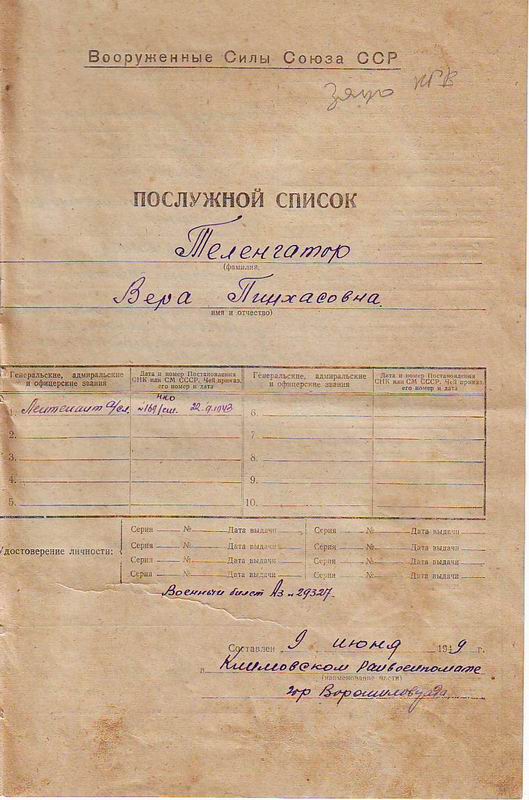 Вооруженные Силы Союза ССР
ПОСЛУЖНОЙ СПИСОК
Теленгатор
(фамилия)
Вера Пинхасовна
имя и отчество)
Генеральские, адмиральские и офицерские звания
Дата и номер Постановления СНК или СМ СССР. Чей приказ, его номер и дата
Генеральские, адмиральские и офицерские звания
Дата и номер Постановления СНК или СМ СССР. Чей приказ, его номер и дата
1. Лейтенант а/сл. НКО №169/сш. 22.9.1943 6.
2. 7.
3. 8.
4. 9.
5. 10.
Удостоверение личности:
Серия № Дата выдачи Серия № Дата выдачи
Серия № Дата выдачи Серия № Дата выдачи
Серия № Дата выдачи Серия № Дата выдачи
Серия № Дата выдачи Серия № Дата выдачи
Военный билет Аз № 29327.
Составлен „ 9 „ июня 1949 г.
в Климовском райвоенкомате
(наименование части)
гор Ворошиловграда.